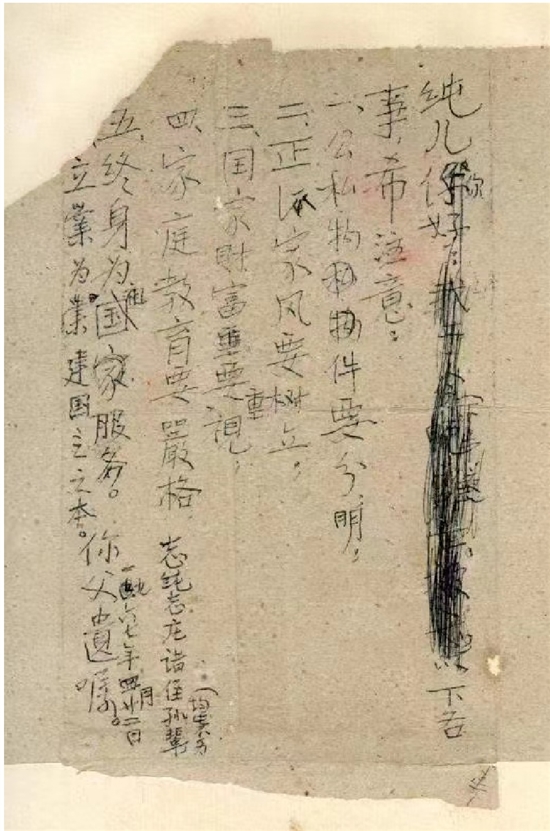 纯儿你好：以下各
事，希注意。
一、公私物物件要分明，
二、正派家风要树立。
三、国家财富要重视，
四、家庭教育要嚴格，
五、终身为祖国家服务。
立業为業建国立之本。
你父遺嘱
六七年四月廿二日
志纯志庄诸侄孙輩